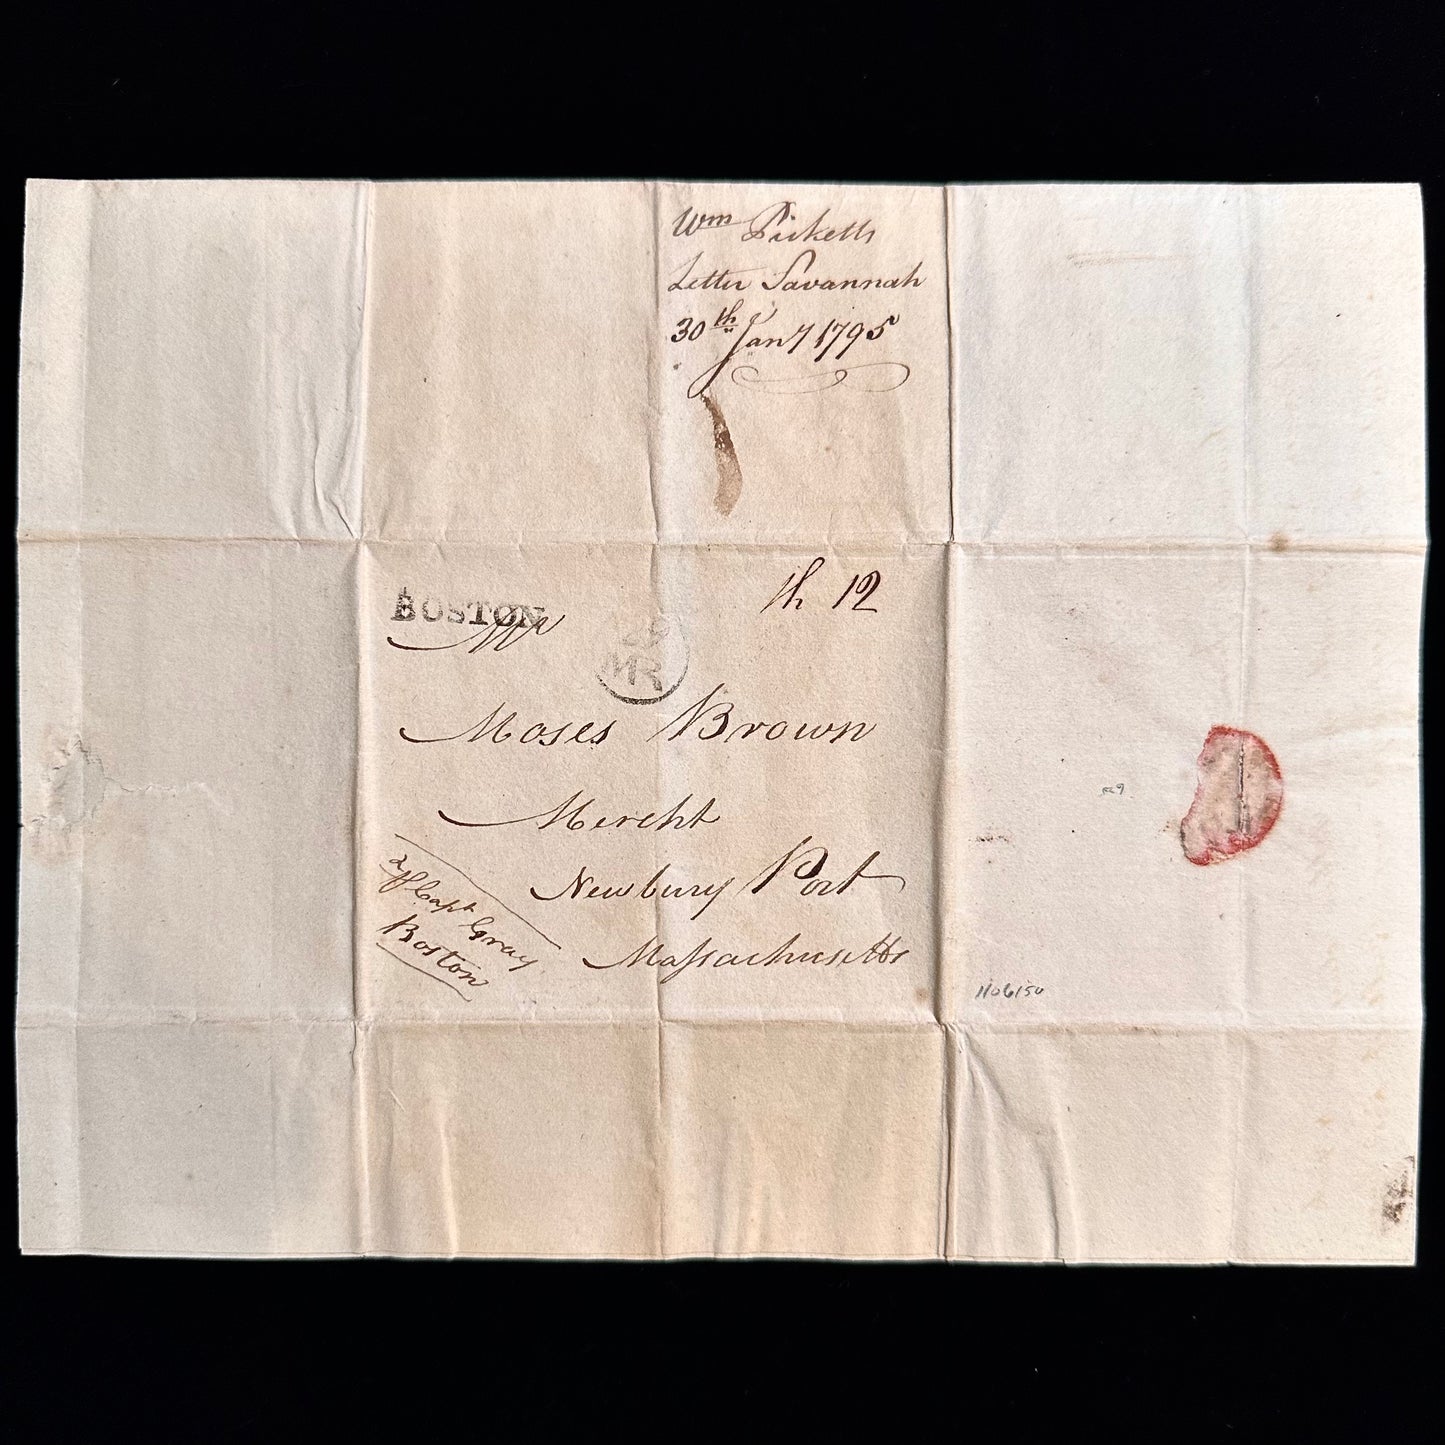 Wm Picketts
Letter Savannah
30th Jany 1795
BOSTON
MR
12
Mr
Moses Brown
Mercht
Newbury Port
Massachusetts
Capt Gray
Boston
1106150